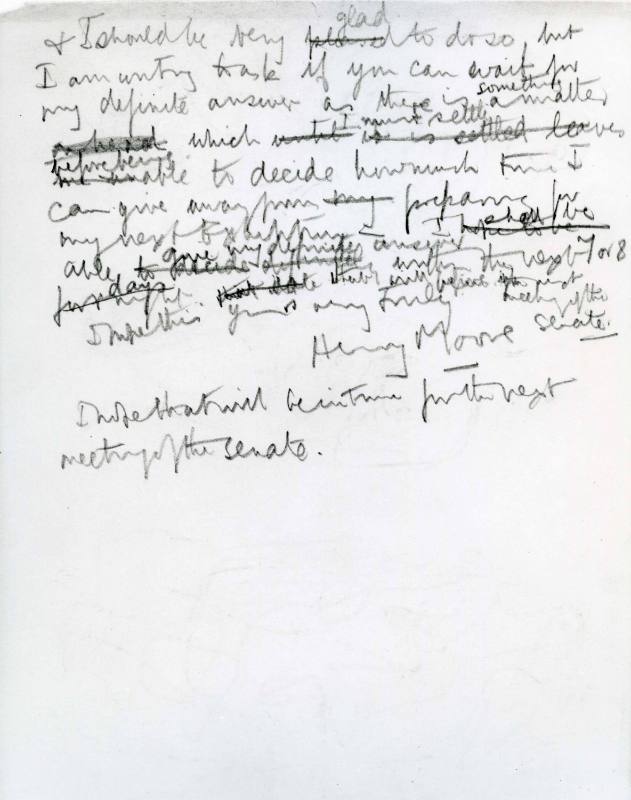 glad
& I should be very pleased to do so but
I am writing to ask if you can wait for
something
my definite answer as there is a matter
I must settle
ahead which until it is settled leaves
before being
me unable to decide how much time I
can give away from my preparing for
my next Exhibition – I shall be
hope to be
give my definite answer
able to decide definitely within the next 7 or 8
days
fortnight. that date
I hope this will be before your next
meeting of the
senate.
yours very truly
Henry Moore
I hope that will be in time for the next
meeting of the senate.